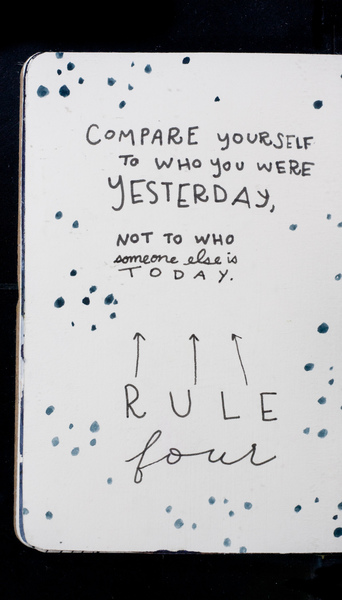 COMPARE YOURSELF
TO WHO YOU WERE
YESTERDAY,
NOT TO WHO
someone else is
TODAY.
RULE
four